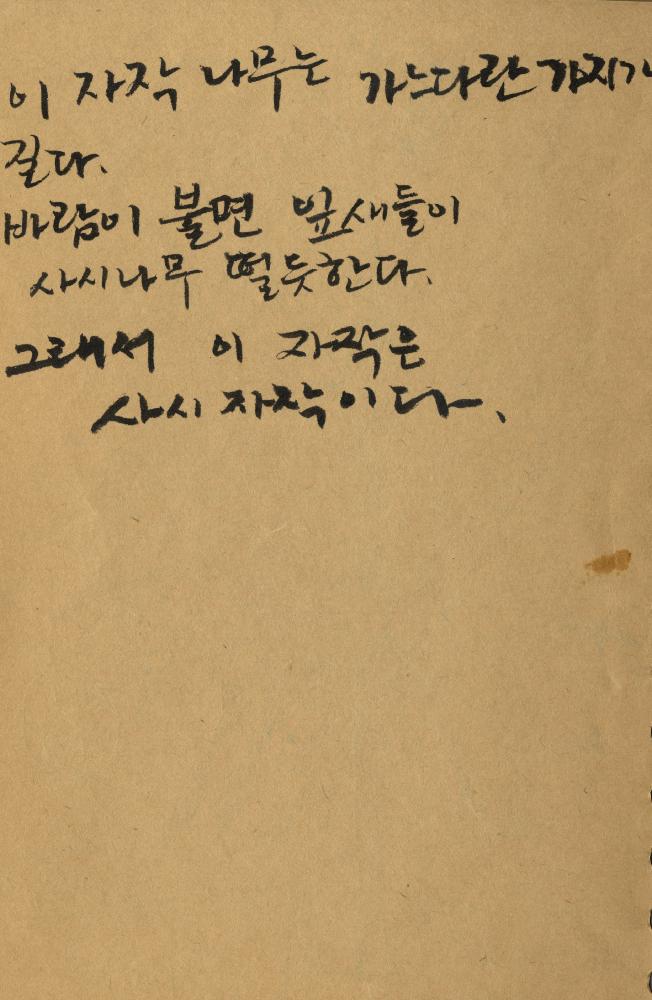 이 자작 나무는 가느다란 가지가
질다.
바람이 불면 잎새들이
사시나무 떨듯한다.
그래서 이 자작은
사시 자작이다.